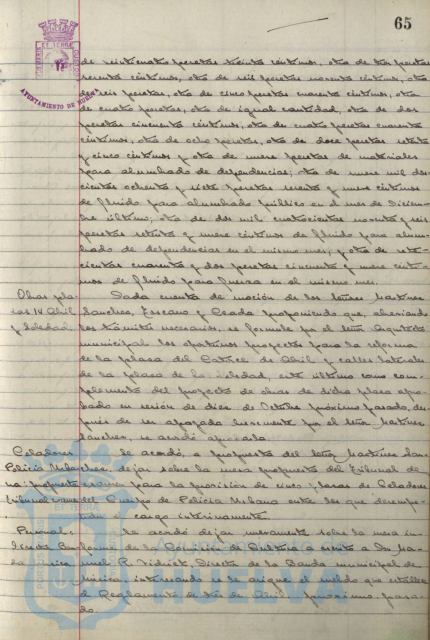 65
AYUNTAMIENTO DE HUELVA
de veinticuatro pesetas treinta céntimos, otra de tres pesetas
sesenta céntimos, otra de seis pesetas noventa céntimos, otra
de seis pesetas, otra de cinco pesetas cuarenta céntimos, otra
de cuatro pesetas, otra de igual cantidad, otra de dos
pesetas cincuenta céntimos, otra de cuatro pesetas cuarenta
céntimos, otra de ocho pesetas, otra de doce pesetas setenta
y cinco céntimos y otra de nueve pesetas de materiales
para alumbrado de dependencias; otra de nueve mil dos-
cientas ochenta y siete pesetas sesenta y nueve céntimos
de fluido para alumbrado público en el mes de Diciem-
bre último; otra de dos mil cuatrocientas noventa y seis
pesetas setenta y nueve céntimos de fluido para alum-
brado de dependencias en el mismo mes, y otra de sete-
cientas cuarenta y dos pesetas cincuenta y nueve cénti-
mos de fluido para fuerza en el mismo mes.
Obras pla-
zas 14 Abril
y Soledad.
Dada cuenta de moción de los señores Martínez
Sánchez, Escano y Ceada proponiendo que, abreviando
los trámites necesarios, se formule por el señor Arquitecto
municipal los oportunos proyectos para la reforma
de la plaza del Catorce de Abril y calles laterales
de la plaza de la Soledad, esta última como com-
plemento del proyecto de obras de dicha plaza apro-
bado en sesión de diez de Octubre próximo pasado, des-
pués de ser apoyada brevemente por el señor Martínez
Sánchez, se acordó aprobarla.
Celadores
Policía Urba-
na: propuesta
tribunal
Se acordó, a propuesta del señor Martínez Sán-
chez, dejar sobre la mesa propuesta del tribunal de
examen para la provisión de cinco plazas de Celadores
del Cuerpo de Policía Urbana entre los que desempe-
ñan cargo interinamente.
Personal:
Director Ban-
da música
Se acordó dejar nuevamente sobre la mesa in-
forme de la Comisión de Cultura a escrito de Don Ma-
nuel R. Vidriet, Director de la Banda municipal de
música, interesando se le asigne el sueldo que establece
el Reglamento de tres de Abril próximo pasa-
do.
AYUNTAMIENTO DE
HUELVA